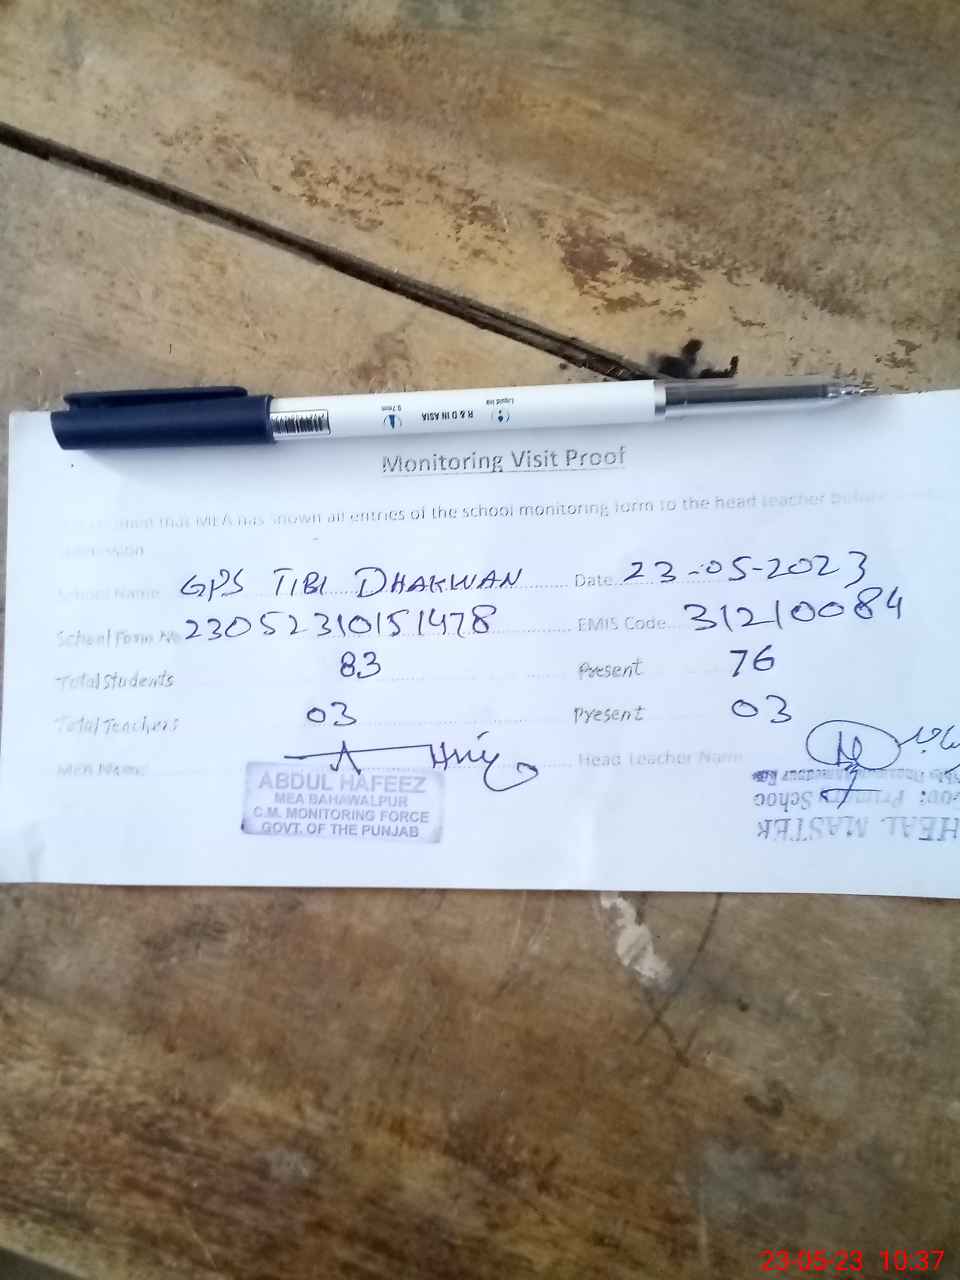 Liquid Ink
0.7mm
R & D IN ASIA
Monitoring Visit Proof
that MEA has shown all entries of the school monitoring form to the head teacher before
School Name GPS TIBI DHAKWAN Date 23-05-2023
School Form No 23052310151478 EMIS Code 31210084
Total Students 83 Present 76
Total Teachers 03 Present 03
MEA Name Head Teacher Name
ABDUL HAFEEZ
MEA BAHAWALPUR
C.M. MONITORING FORCE
GOVT. OF THE PUNJAB
HEAL MASTER
Primary School
23-05-23 10:37